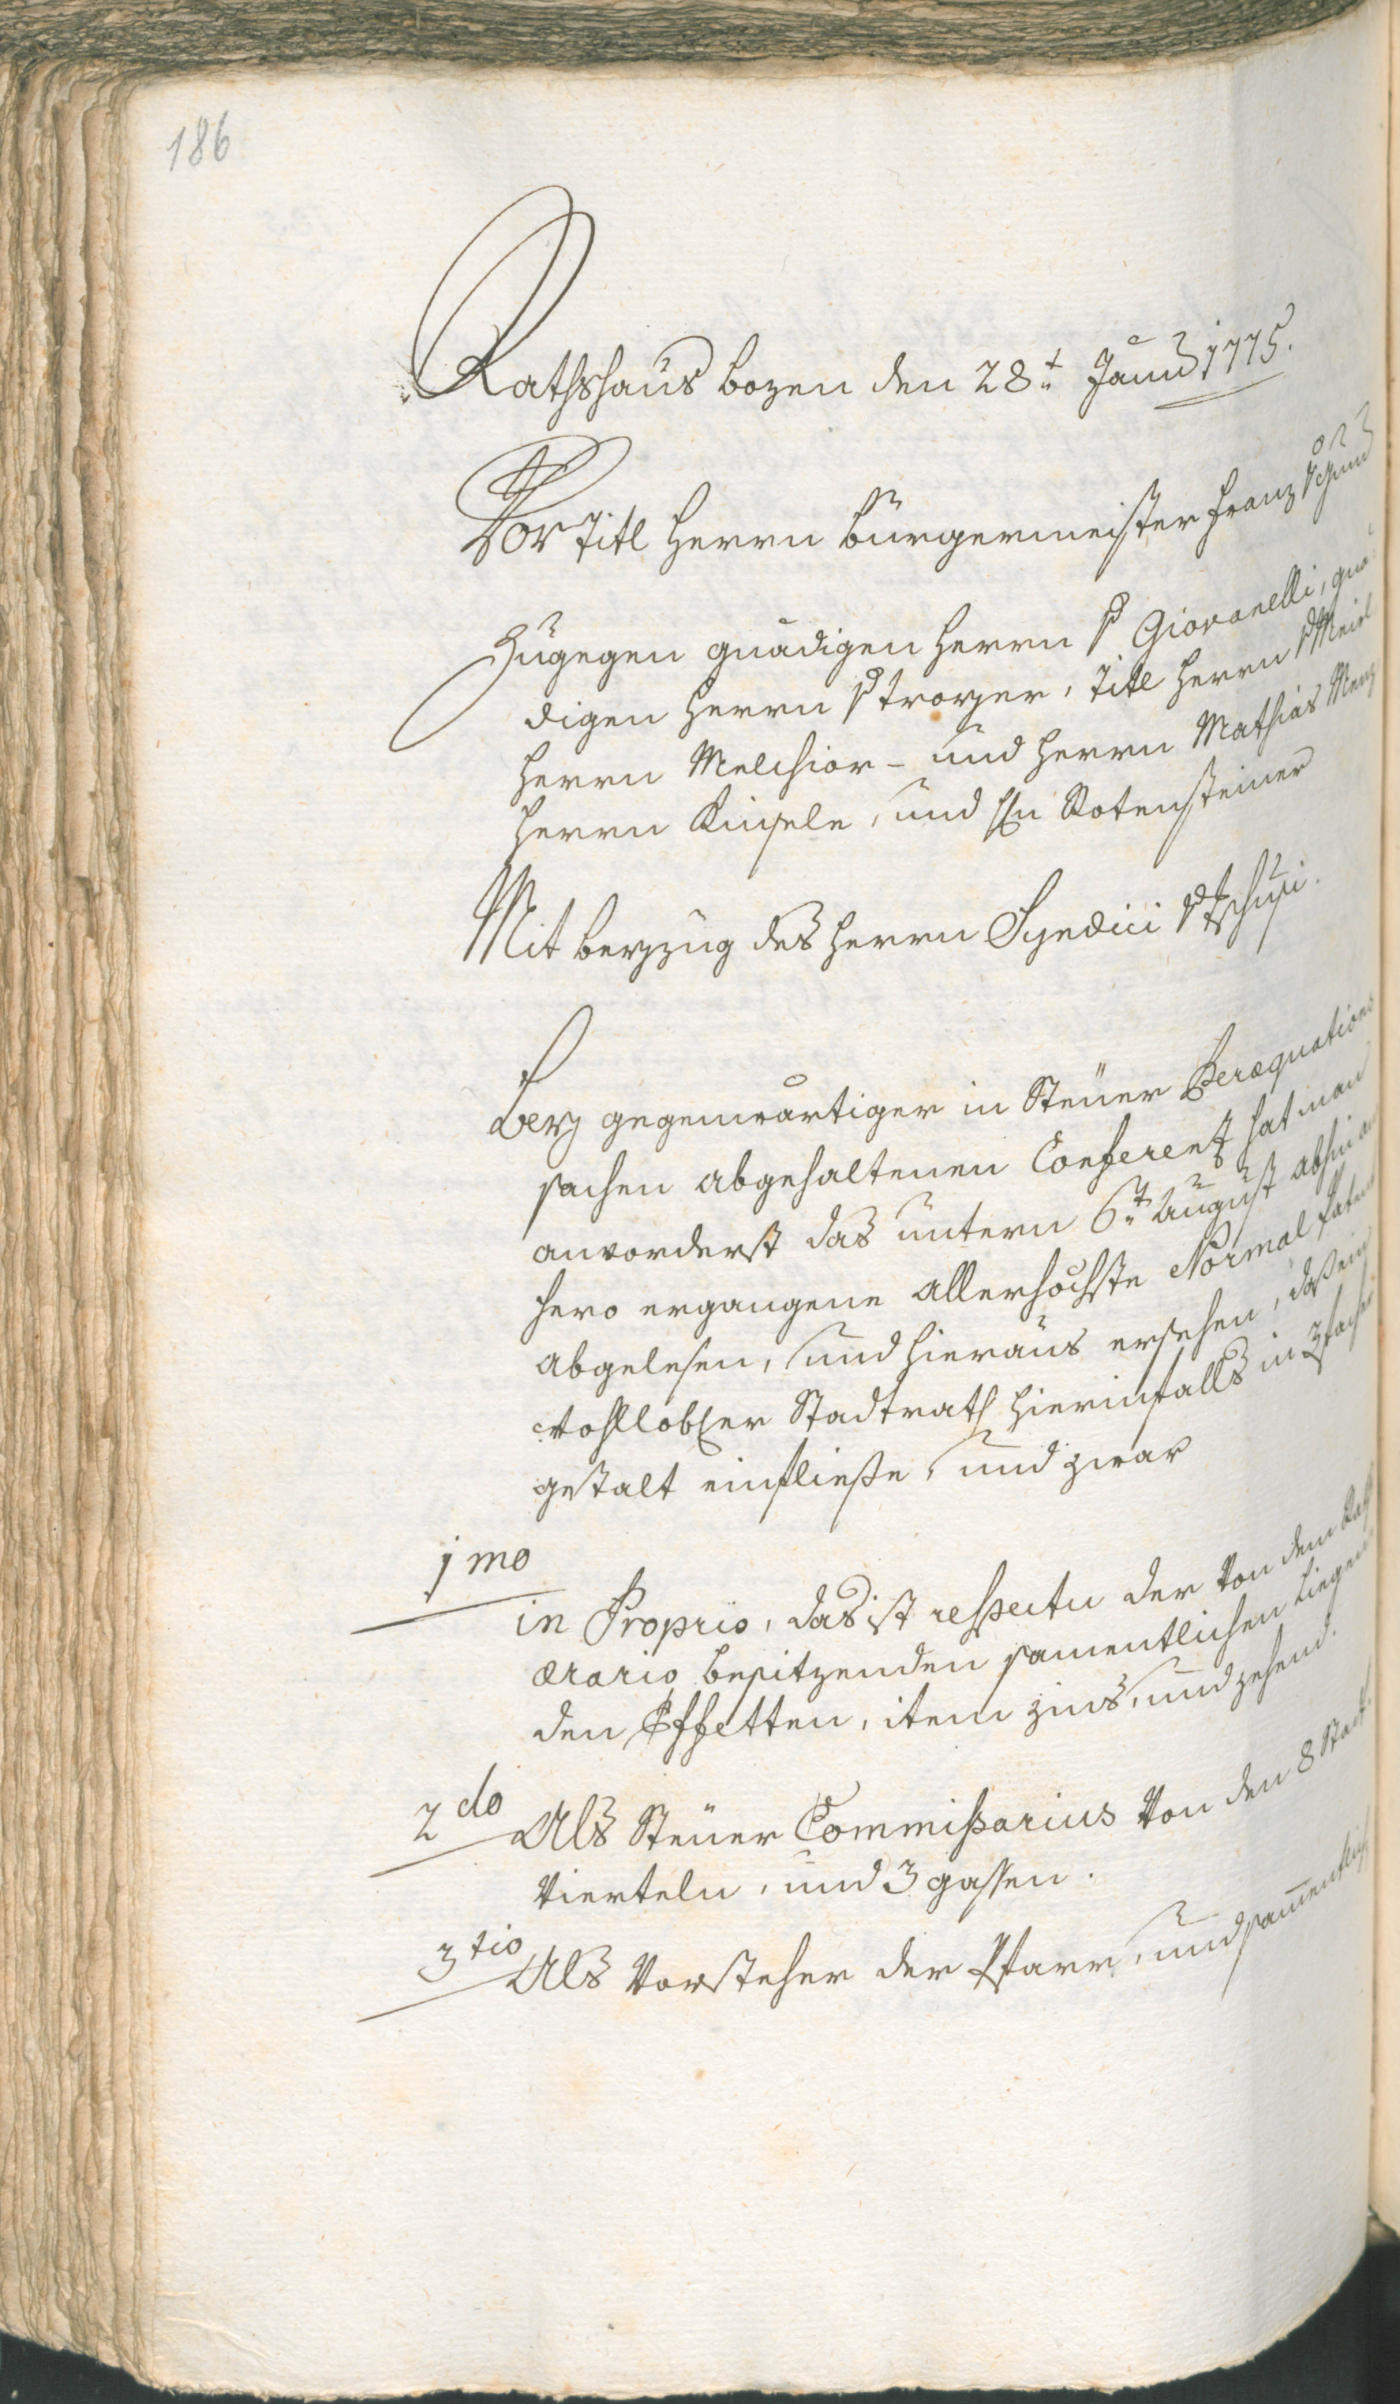 186
Rathshaus bozen den 28.t Jann 1775.
Vor Titl Herrn bürgermeister Franz v
Zugegen gnädigen Herrn v Giovanelli, gnä
digen Herrn v troyer, Titl Herrn v
Herrn Melchior- und Herrn Mathias Menz
Herrn Kinsele, und Hn Rotensteiner
Mit beyzug des Herrn Syndici v
bey gegenwärtiger in Steüer Peræquations
sachen abgehaltenen Conferenz hat man
anvorderst das untern 6.t August abhin an
hero ergangene allerhöchste Normal Patent
abgelesen, und hieraus ersehen, daß ein
wohlloblier Stadtrath hierinfalls in 3facher
gestalt einfließe, und zwar
1mo
in Proprio, das ist respectu der von dem Rath
ærario besitzenden samentlichen liegen
den Effetten, item zins, und zehend.
2do Als Steüer Commißarius von den 8 Stadt
vierteln, und 3 gassen.
3tio Als Vorsteher der Pfarr, und sammentlich